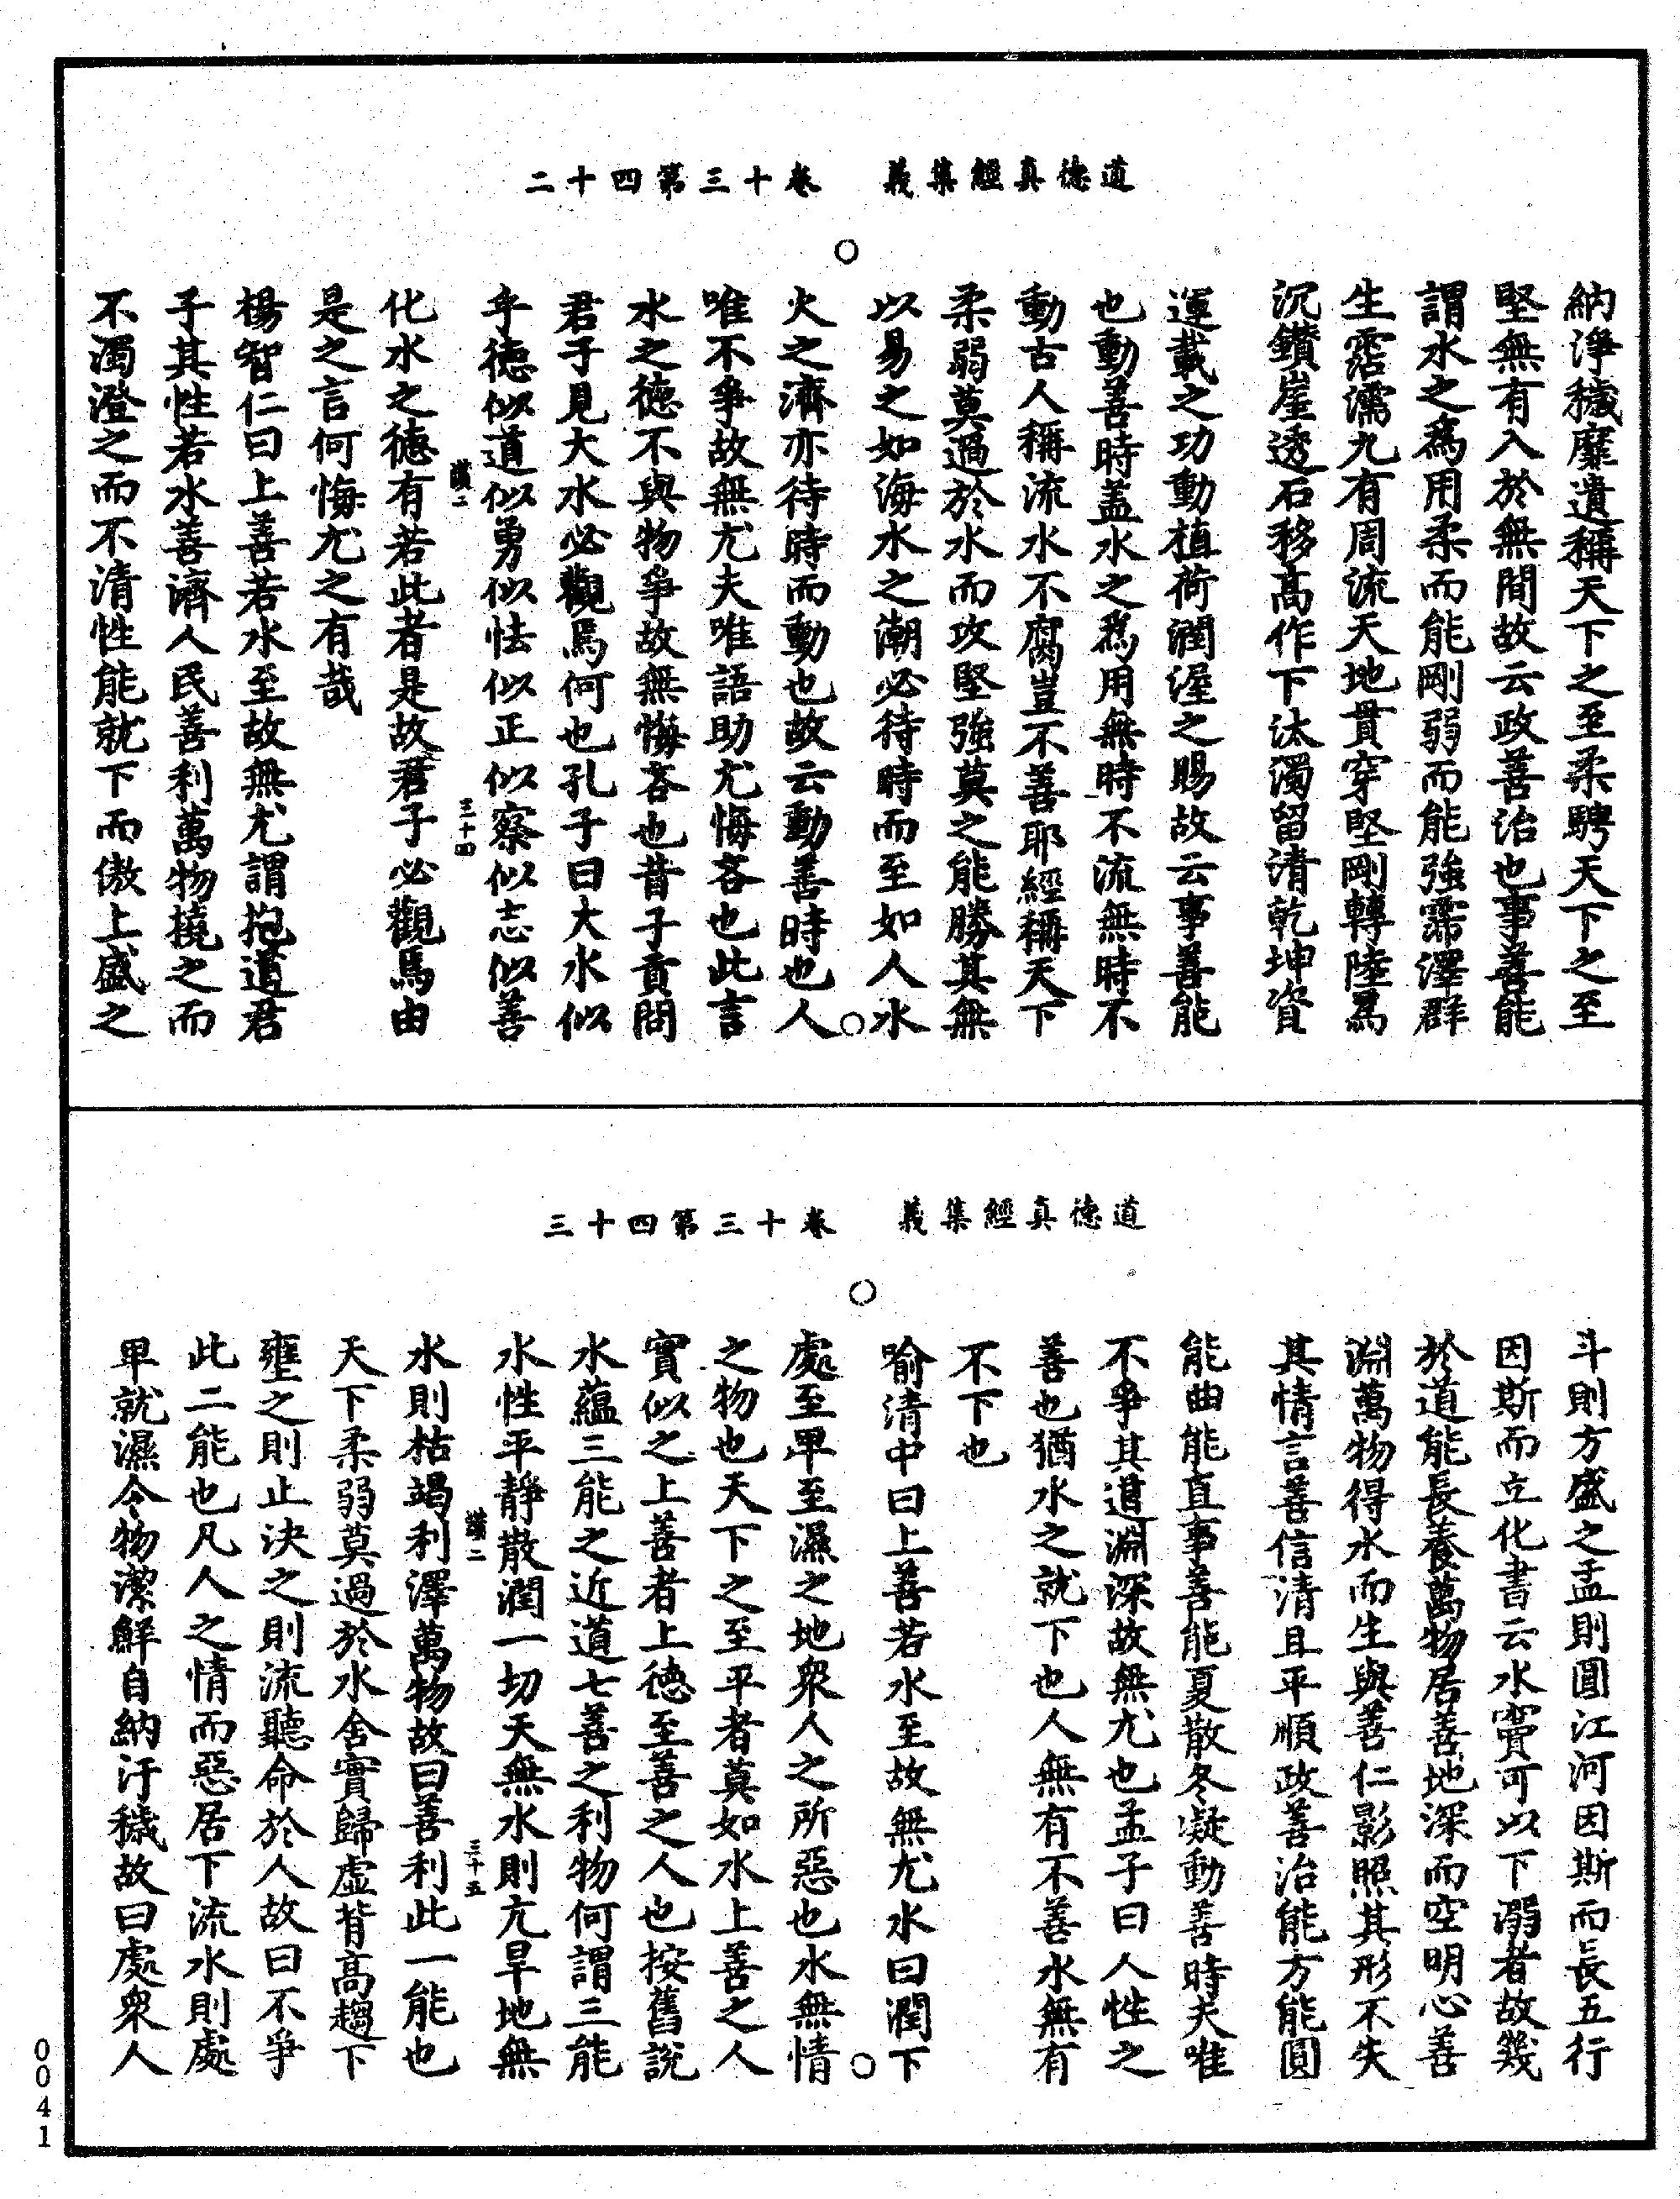 道德真經集義　卷十三第四十二
納淨穢靡遺稱天下之至柔騁天下之至
堅無有入於無間故云政善治也事善能
謂水之為用柔而能剛弱而能強霈澤群
生霑濡九有周流天地貫穿堅剛轉陸為
沉鑽崖透石移高作下汰濁留清乾坤資
運載之功動植荷潤渥之賜故云事善能
也動善時盖水之為用無時不流無時不
動古人稱流水不腐豈不善耶經稱天下
柔弱莫過於水而攻堅強莫之能勝其無
以易之如海水之潮必待時而至如人水
火之濟亦待時而動也故云動善時也人
唯不爭故無尤夫唯語助尤悔吝也此言
水之德不與物爭故無悔吝也昔子貢問
君子見大水必觀焉何也孔子曰大水似
乎德似道似勇似怯似正似察似志似善
讚二
三十四
化水之德有若此者是故君子必觀焉由
是之言何悔尤之有哉
楊智仁曰上善若水至故無尤謂抱道君
子其性若水善濟人民善利萬物撓之而
不濁澄之而不清性能就下而傲上盛之
道德真經集義　卷十三第四十三
斗則方盛之盂則圓江河因斯而長五行
因斯而立化書云水竇可以下溺者故幾
於道能長養萬物居善地深而空明心善
淵萬物得水而生與善仁影照其形不失
其情言善信清且平順政善治能方能圓
能曲能直事善能夏散冬凝動善時夫唯
不爭其道淵深故無尤也孟子曰人性之
善也猶水之就下也人無有不善水無有
不下也
喻清中曰上善若水至故無尤水曰潤下
處至卑至濕之地衆人之所惡也水無情
之物也天下之至平者莫如水上善之人
實似之上善者上德至善之人也按舊說
水蘊三能之近道七善之利物何謂三能
水性平靜散潤一切天無水則亢旱地無
讚二
三十五
水則枯竭利澤萬物故曰善利此一能也
天下柔弱莫過於水舍實歸虛背高趨下
壅之則止決之則流聽命於人故曰不爭
此二能也凡人之情而惡居下流水則處
卑就濕令物潔鮮自納汙穢故曰處衆人
0041